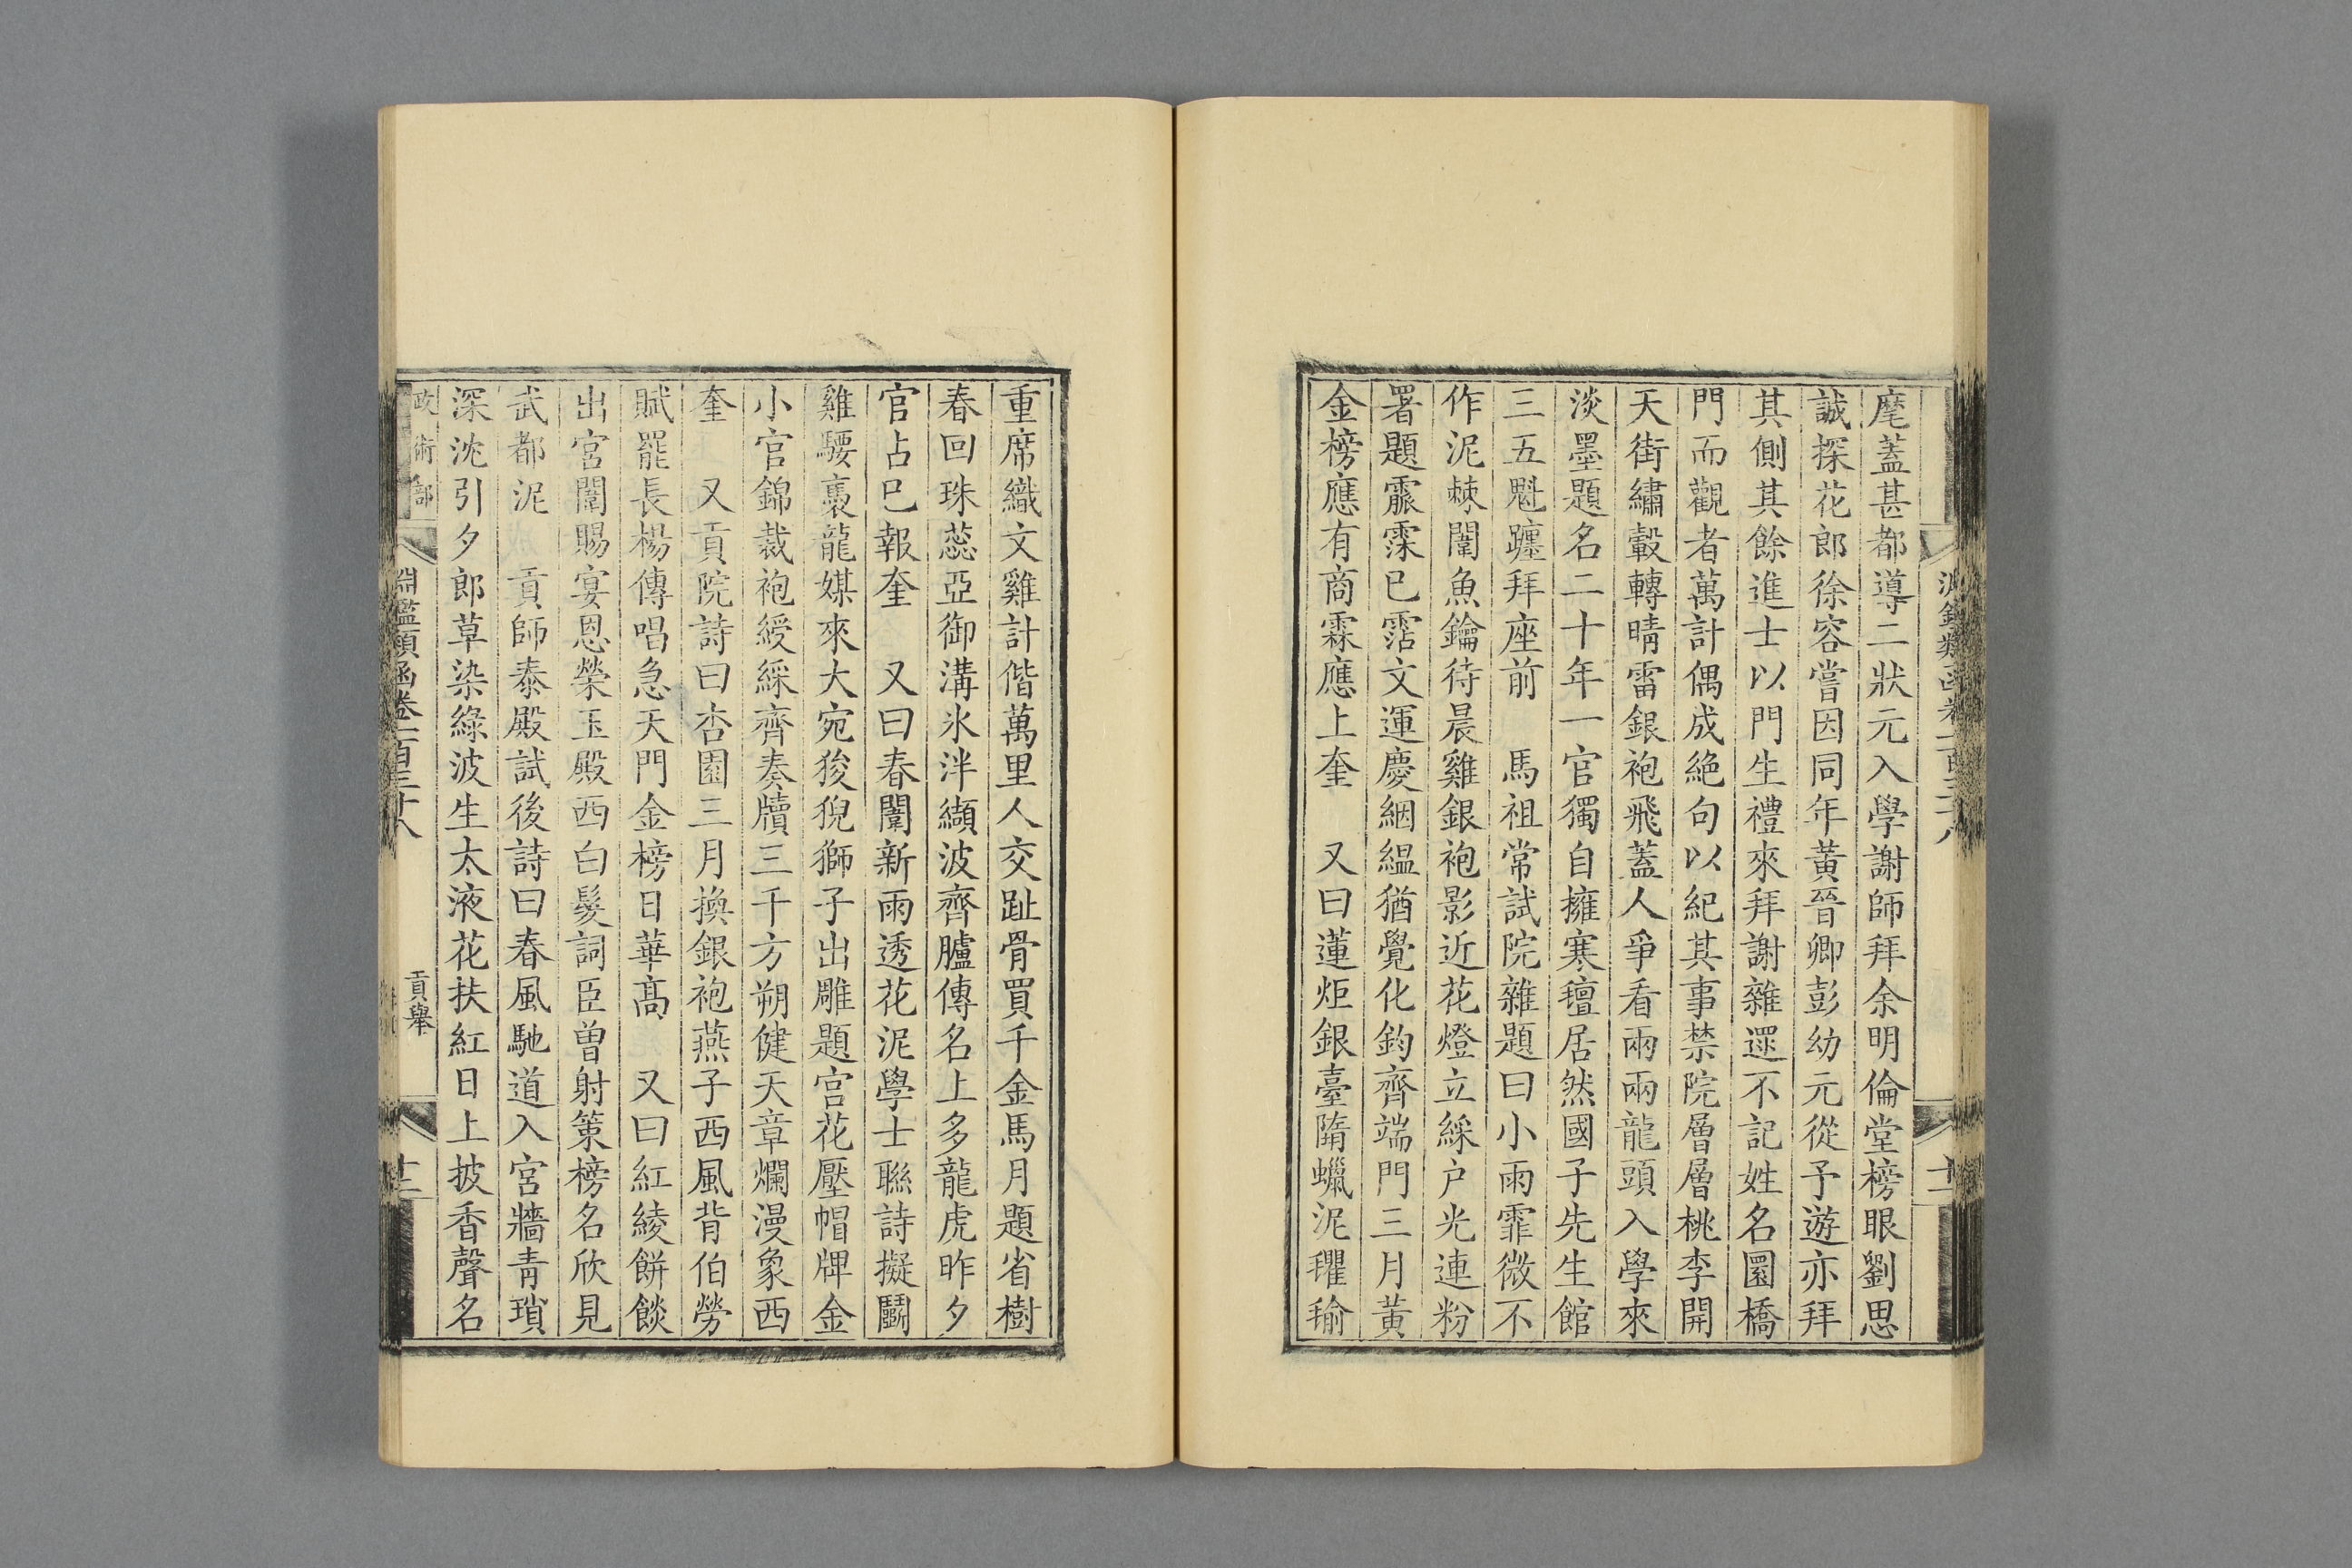 麾蓋甚都導二狀元入學謝師拜余明倫堂榜眼劉思
誠探花郎徐容嘗因同年黃晉卿彭幼元從予遊亦拜
其側其餘進士以門生禮來拜謝雜遝不記姓名圜橋
門而觀者萬計偶成絶句以紀其事禁院層層桃李開
天街繡轂轉晴雷銀袍飛蓋人爭看兩兩龍頭入學來
淡墨題名二十年一官獨自擁寒氊居然國子先生館
三五魁躔拜座前　馬祖常試院雜題曰小雨霏微不
作泥棘闈魚鑰待晨雞銀袍影近花燈立綵户光連粉
署題霢霂已霑文運慶絪緼猶覺化鈞齊端門三月黃
金榜應有商霖應上奎　又曰蓮炬銀臺隋蠟泥瓘瑜
重席織文雞計偕萬里人交趾骨買千金馬月題省樹
春回珠蕊亞御溝氷泮纈波齊臚傳名上多龍虎昨夕
官占已報奎　又曰春闈新雨透花泥學士聯詩擬鬬
雞騕褭龍媒來大宛狻猊獅子出雕題宮花壓帽牌金
小官錦裁袍綬綵齊奏牘三千方朔健天章爛漫象西
奎　又貢院詩曰杏園三月換銀袍燕子西風背伯勞
賦罷長楊傳唱急天門金榜日華高　又曰紅綾餅餤
出宮闈賜宴恩榮玉殿西白髮詞臣曽射策榜名欣見
武都泥　貢師泰殿試後詩曰春風馳道入宮牆青瑣
深沈引夕郎草染綠波生太液花扶紅日上披香聲名
政術部　淵鑑類函卷一百三十八　貢舉　十二